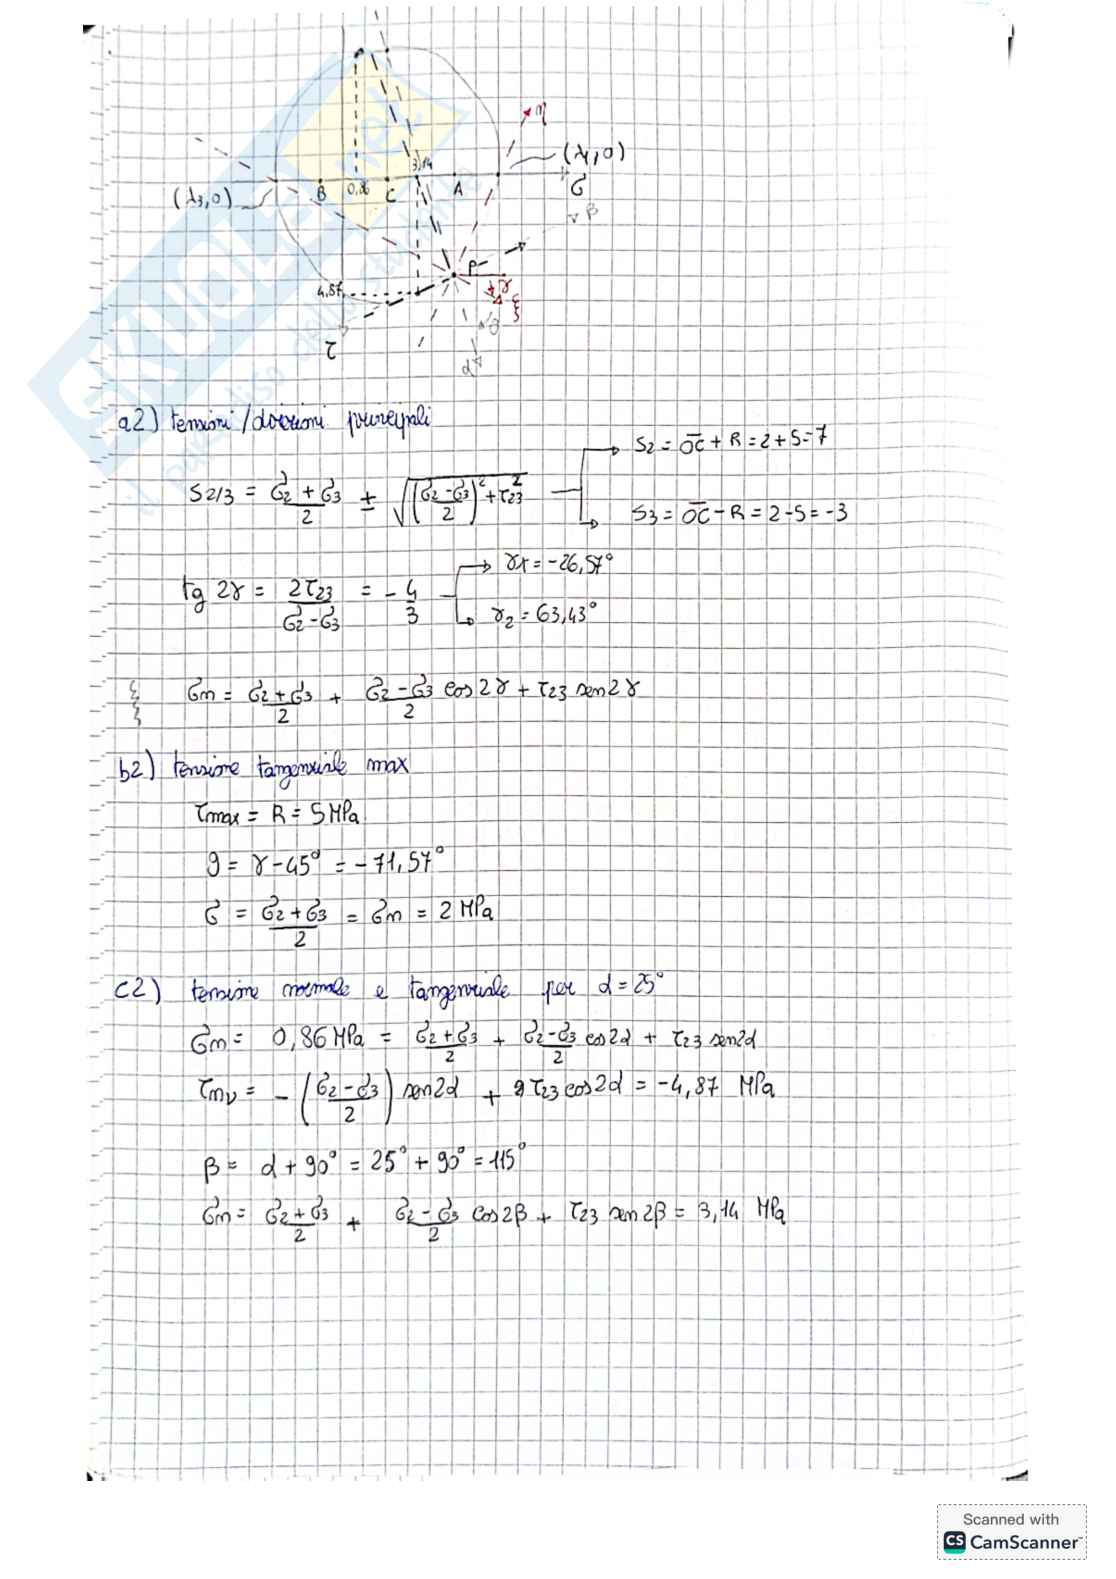 η
(λ1,0)
3,14
(λ3,0)
B
0,86
C
A
σ
β
P
γ
4,87
ξ
τ
α
a2) tensioni/direzioni principali
S2/3 = σ2 + σ3 / 2 ± √((σ2 - σ3 / 2)² + τ23²)
S2 = OC + R = 2 + 5 = 7
S3 = OC - R = 2 - 5 = -3
tg 2γ = 2τ23 / σ2 - σ3 = - 4/3
γ1 = -26,57°
γ2 = 63,43°
σm = σ2 + σ3 / 2 + σ2 - σ3 / 2 cos2γ + τ23 sen2γ
b2) tensione tangenziale max
τmax = R = 5 MPa
ϑ = γ - 45° = -71,57°
σ = σ2 + σ3 / 2 = σm = 2 MPa
c2) tensione normale e tangenziale per α = 25°
σm = 0,86 MPa = σ2 + σ3 / 2 + σ2 - σ3 / 2 cos2α + τ23 sen2α
τmν = - (σ2 - σ3 / 2) sen2α + τ23 cos2α = -4,87 MPa
β = α + 90° = 25° + 90° = 115°
σm = σ2 + σ3 / 2 + σ2 - σ3 / 2 cos2β + τ23 sen2β = 3,14 MPa
SKUOLA.net
Scanned with
CS CamScanner